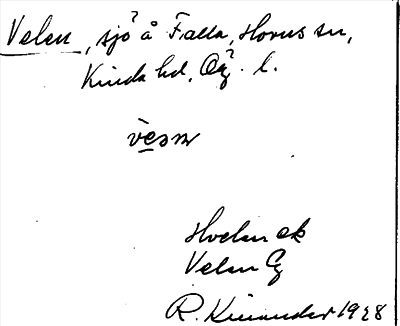 Velen, sjö å Falla, Horns sn,
Kinda hd, Ög. l.
Hvelen ek
Velen G
R. Kinander 1928